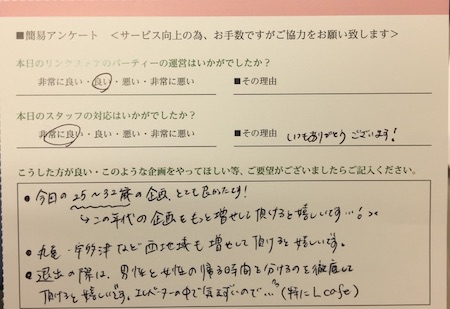 ■簡易アンケート ＜サービス向上の為、お手数ですがご協力をお願い致します＞
本日のリンクスタイルのパーティーの運営はいかがでしたか？
非常に良い・良い・悪い・非常に悪い ■その理由
本日のスタッフの対応はいかがでしたか？
非常に良い・良い・悪い・非常に悪い ■その理由 いつもありがとうございます！
こうした方が良い・このような企画をやってほしい等、ご要望がございましたらご記入ください。
● 今日の25〜32歳の企画、とても良かったです！
↳この年代の企画をもっと増やして頂けると嬉しいです…！
● 丸亀・宇多津など西地域も増やして頂けると嬉しいです。
● 退出の際は、男性と女性の帰る時間を分けるのを徹底して
頂けると嬉しいです。エレベーターの中で気まずいので…（特にL cafe）